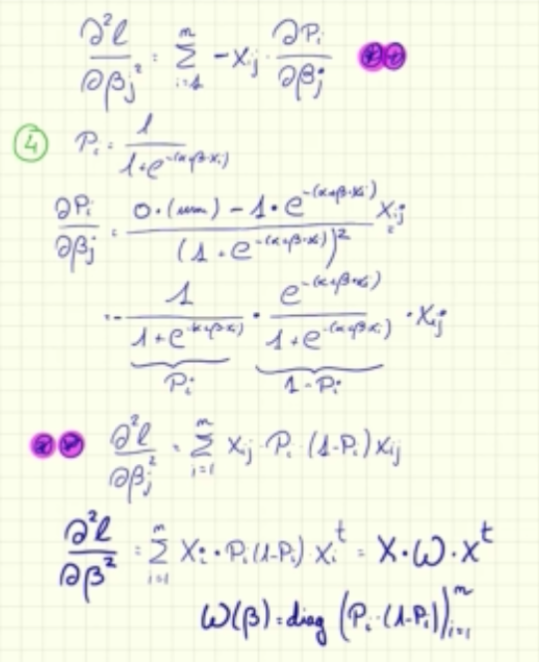 ∂²l/∂βj² = Σ_{i=1}^{n} -Xij · ∂Pi/∂βj **
④ Pi = 1/(1+e^{-(α+β·Xi)})
∂Pi/∂βj = (0·(um) - 1·e^{-(α+β·Xi)})/(1+e^{-(α+β·Xi)})² Xij
= - 1/(1+e^{-(α+β·Xi)}) · e^{-(α+β·Xi)}/(1+e^{-(α+β·Xi)}) · Xij
Pi 1-Pi
** ∂²l/∂βj² = Σ_{i=1}^{n} Xij · Pi · (1-Pi) Xij
∂²l/∂β² = Σ_{i=1}^{n} Xi · Pi(1-Pi) · Xi^t = X·W·X^t
W(β) = diag (Pi·(1-Pi))_{i=1}^{n}